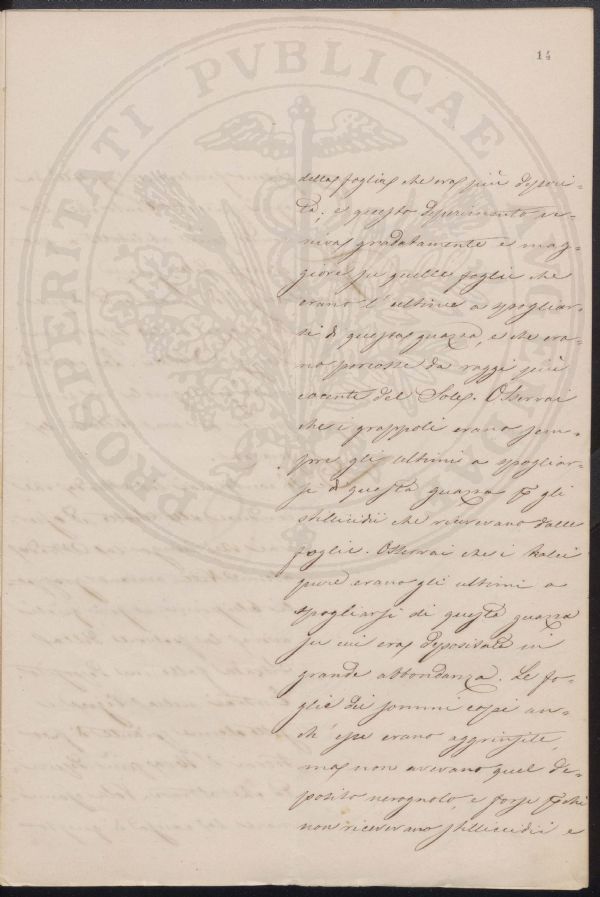 14
PROSPERITATI PVBLICAE AVGENDAE
della foglia che era più deperi-
ta; e questo deperimento ve-
niva gradatamente e mag-
giore su quelle foglie che
erano l'ultime a spogliar-
si di questa guazza, e che era-
no percosse da raggi più
cocenti del Sole. Osservai
che i grappoli erano sem-
pre gli ultimi a spogliar-
si di questa guazza p gli
stillicidii che ricevevano dalle
foglie. Osservai che i tralci
pure erano gli ultimi a
spogliarsi di questa guazza
su cui era depositata in
grande abbondanza. Le fo-
glie dei sommi copi an-
ch'esse erano aggrinzite,
ma non avevano quel de-
posito nerognolo, e forse p chè
non ricevevano stillicidii e